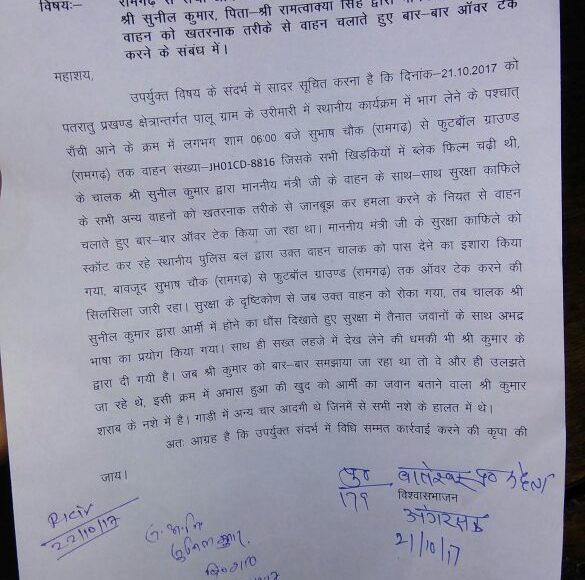 विषय:–
श्री सुनील कुमार, पिता–श्री रामत्वाक्या सिंह द्वारा
वाहन को खतरनाक तरीके से वाहन चलाते हुए बार–बार ऑवर टेक
करने के संबंध में।
महाशय,
उपर्युक्त विषय के संदर्भ में सादर सूचित करना है कि दिनांक–21.10.2017 को
पतरातु प्रखण्ड क्षेत्रान्तर्गत पालू ग्राम के उरीमारी में स्थानीय कार्यक्रम में भाग लेने के पश्चात्
राँची आने के क्रम में लगभग शाम 06:00 बजे सुभाष चौक (रामगढ़) से फुटबॉल ग्राउण्ड
(रामगढ़) तक वाहन संख्या–JH01CD-8816 जिसके सभी खिड़कियों में ब्लेक फिल्म चढ़ी थी,
के चालक श्री सुनील कुमार द्वारा माननीय मंत्री जी के वाहन के साथ–साथ सुरक्षा काफिले
के सभी अन्य वाहनों को खतरनाक तरीके से जानबूझ कर हमला करने के नियत से वाहन
चलाते हुए बार–बार ऑवर टेक किया जा रहा था। माननीय मंत्री जी के सुरक्षा काफिले को
स्कॉट कर रहे स्थानीय पुलिस बल द्वारा उक्त वाहन चालक को पास देने का इशारा किया
गया, बावजूद सुभाष चौक (रामगढ़) से फुटबॉल ग्राउण्ड (रामगढ़) तक ऑवर टेक करने की
सिलसिला जारी रहा। सुरक्षा के दृष्टिकोण से जब उक्त वाहन को रोका गया, तब चालक श्री
सुनील कुमार द्वारा आर्मी में होने का धौंस दिखाते हुए सुरक्षा में तैनात जवानों के साथ अभद्र
भाषा का प्रयोग किया गया। साथ ही सख्त लहजे में देख लेने की धमकी भी श्री कुमार के
द्वारा दी गयी है। जब श्री कुमार को बार–बार समझाया जा रहा था तो वे और ही उलझते
जा रहे थे, इसी क्रम में अभास हुआ की खुद को आर्मी का जवान बताने वाला श्री कुमार
शराब के नशे में है। गाडी में अन्य चार आदमी थे जिनमें से सभी नशे के हालत में थे।
अतः आग्रह है कि उपर्युक्त संदर्भ में विधि सम्मत कार्रवाई करने की कृपा की
जाय।
179
विश्वासभाजन
अंगरक्षक
21/10/17
22/10/17